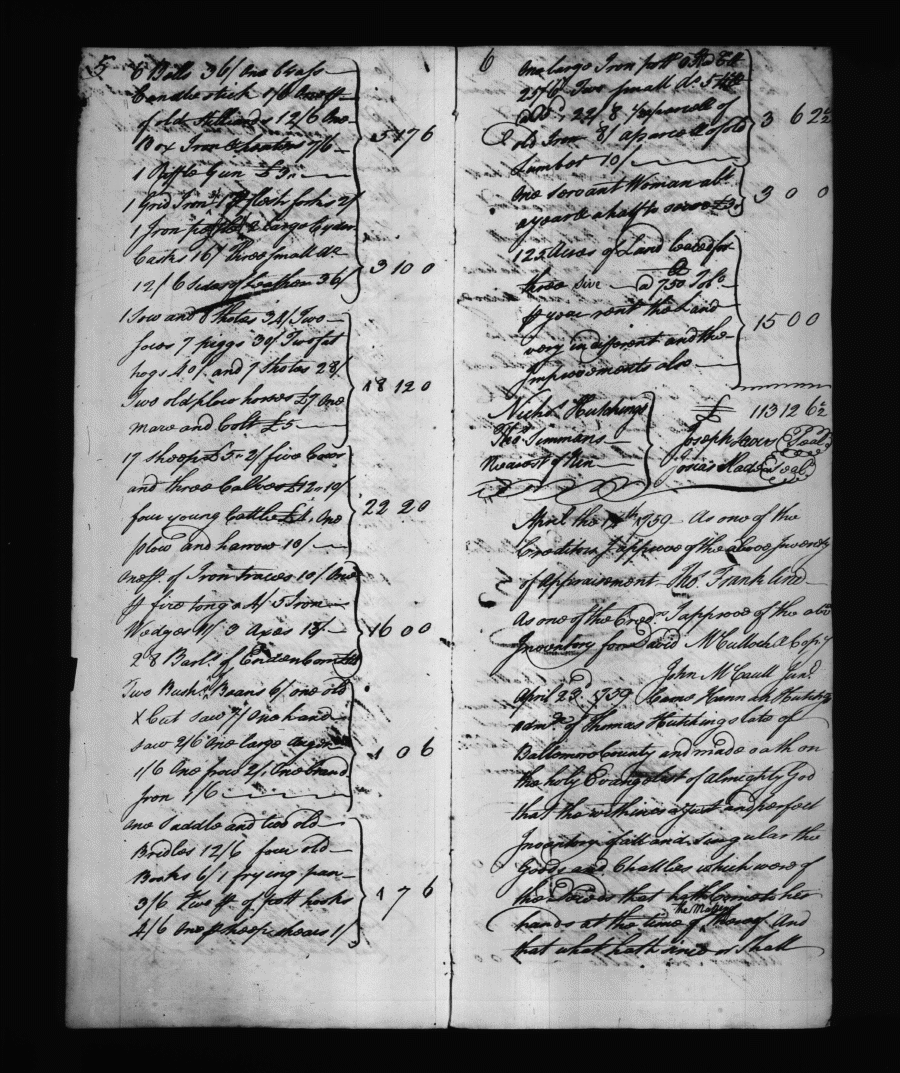 5
6 Bells 36/ One brass
Candlestick 1/6 One pr
of old stilliards 12/6 One
Box Iron & heaters 7/6
1 Riffle Gun £3
5 17 6
1 Grid Iron flesh forks 2/
1 Iron large Cyder
Casks 16/ three small do
12/ 6 sides of Leather 36/
3 10 0
1 Sow and 8 Shotes 34/ Two
sows 7 piggs 30/ Two fat
hogs 40/ and 7 Shotes 28/
Two old plow horses £7 One
mare and Colt £5
18 12 0
17 Sheep £5 2/ five Cows
and three Calves £12 19/
four young Cattle £4 One
plow and harrow 10/
22 2 0
One pr of Iron traces 10/ One
pr fire tongs 4/ 5 Iron
Wedges 3 Axes
28 Barls of Indian Corn
16 0 0
Two Bushs Beans 6/ one old
X Cut saw 7/ One hand
saw 2/6 One large Auger
1/6 One frow 2/ One brand
Iron 1/6
1 0 6
One saddle and two old
Bridles 12/6 four old
Books 6/ 1 frying pan
3/6 two pr of pott hooks
4/6 One pr sheep shears 1/
1 7 6
6
One large Iron pott
25/6 Two small do
22/8 a parcell of
old Iron 8/ a parcell of old
Lumber 10/
3 6 2½
One servant Woman abt
a year & a half to serve £3
3 0 0
125 Acres of Land leased for
three live @ 750 Tobo
pr year rent the Land
very indiferent and the
Improvements also
15 0 0
£ 113 12 6½
Nichs Hutchings
Thos Timmans
Nearest of Kin
Joseph Lewis Seal
Josias Seal
April the 1759 As one of the
Creditors I approve of the above Inventy
of Appraisement Thos Franklin
As one of the Credrs I approve of the abov
Inventory for David McCulloch & Compy
John McCaull Junr
April 23d 1759 Came Hannah Hutchings
admx of Thomas Hutchings late of
Baltomore County and made oath on
the holy Evangelist of Almighty God
that the within is a just and perfect
Inventory of all and singular the
Goods and Chattles which were of
the Deceds that hath come to her
hands at the time of the Making thereof And
that what hath since or Shall